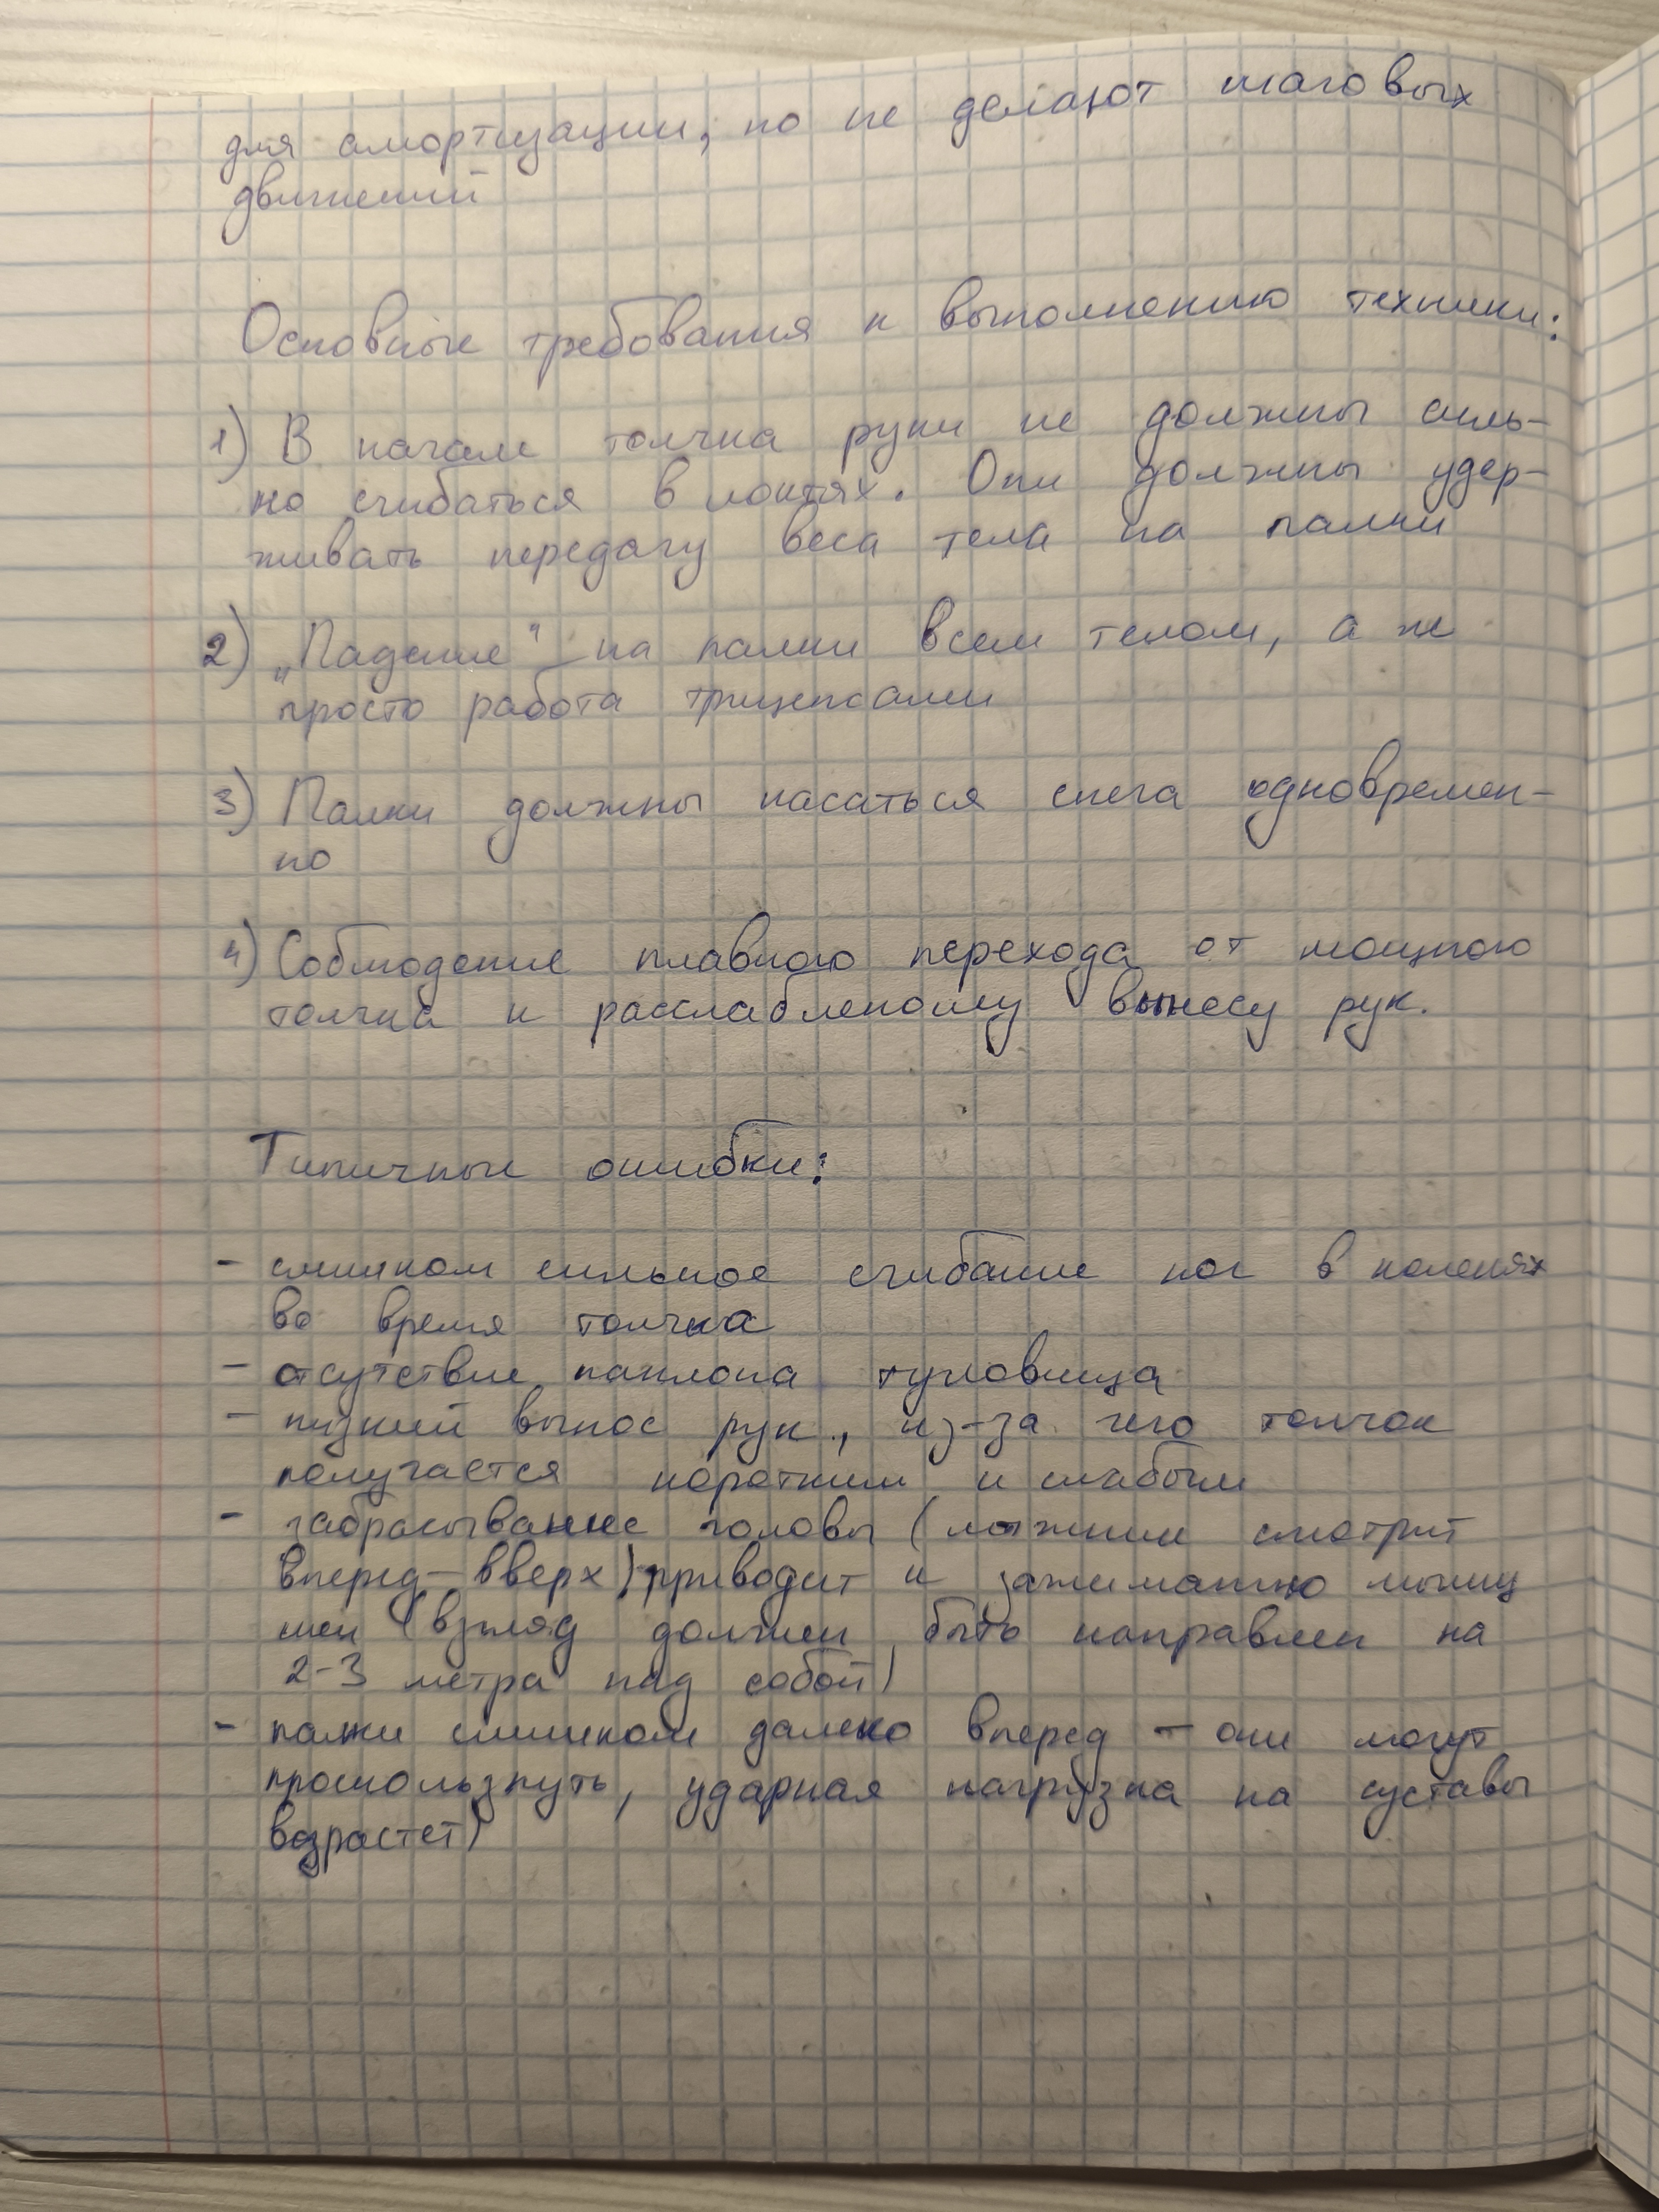 для амортизации, но не делают шаговых
движений
Основные требования к выполнению техники:
1) В начале толчка руки не должны силь-
но сгибаться в локтях. Они должны удер-
живать передачу веса тела на палки
2) „Падение" на палки всем телом, а не
просто работа трицепсами
3) Палки должны касаться снега одновремен-
но
4) Соблюдение плавного перехода от мощного
толчка к расслабленому вынесу рук.
Типичные ошибки:
- слишком сильное сгибание ног в коленях
во время толчка
- отсутствие наклона туловища
- низкий вынос рук, из-за чего толчок
получается коротким и слабым
- забрасывание головы (лыжник смотрит
вперед-вверх) приводит к зажиманию мышц
шеи (взгляд должен быть направлен на
2-3 метра над собой)
- палки слишком далеко вперед - они могут
проскользнуть, ударная нагрузка на суставы
возрастет)